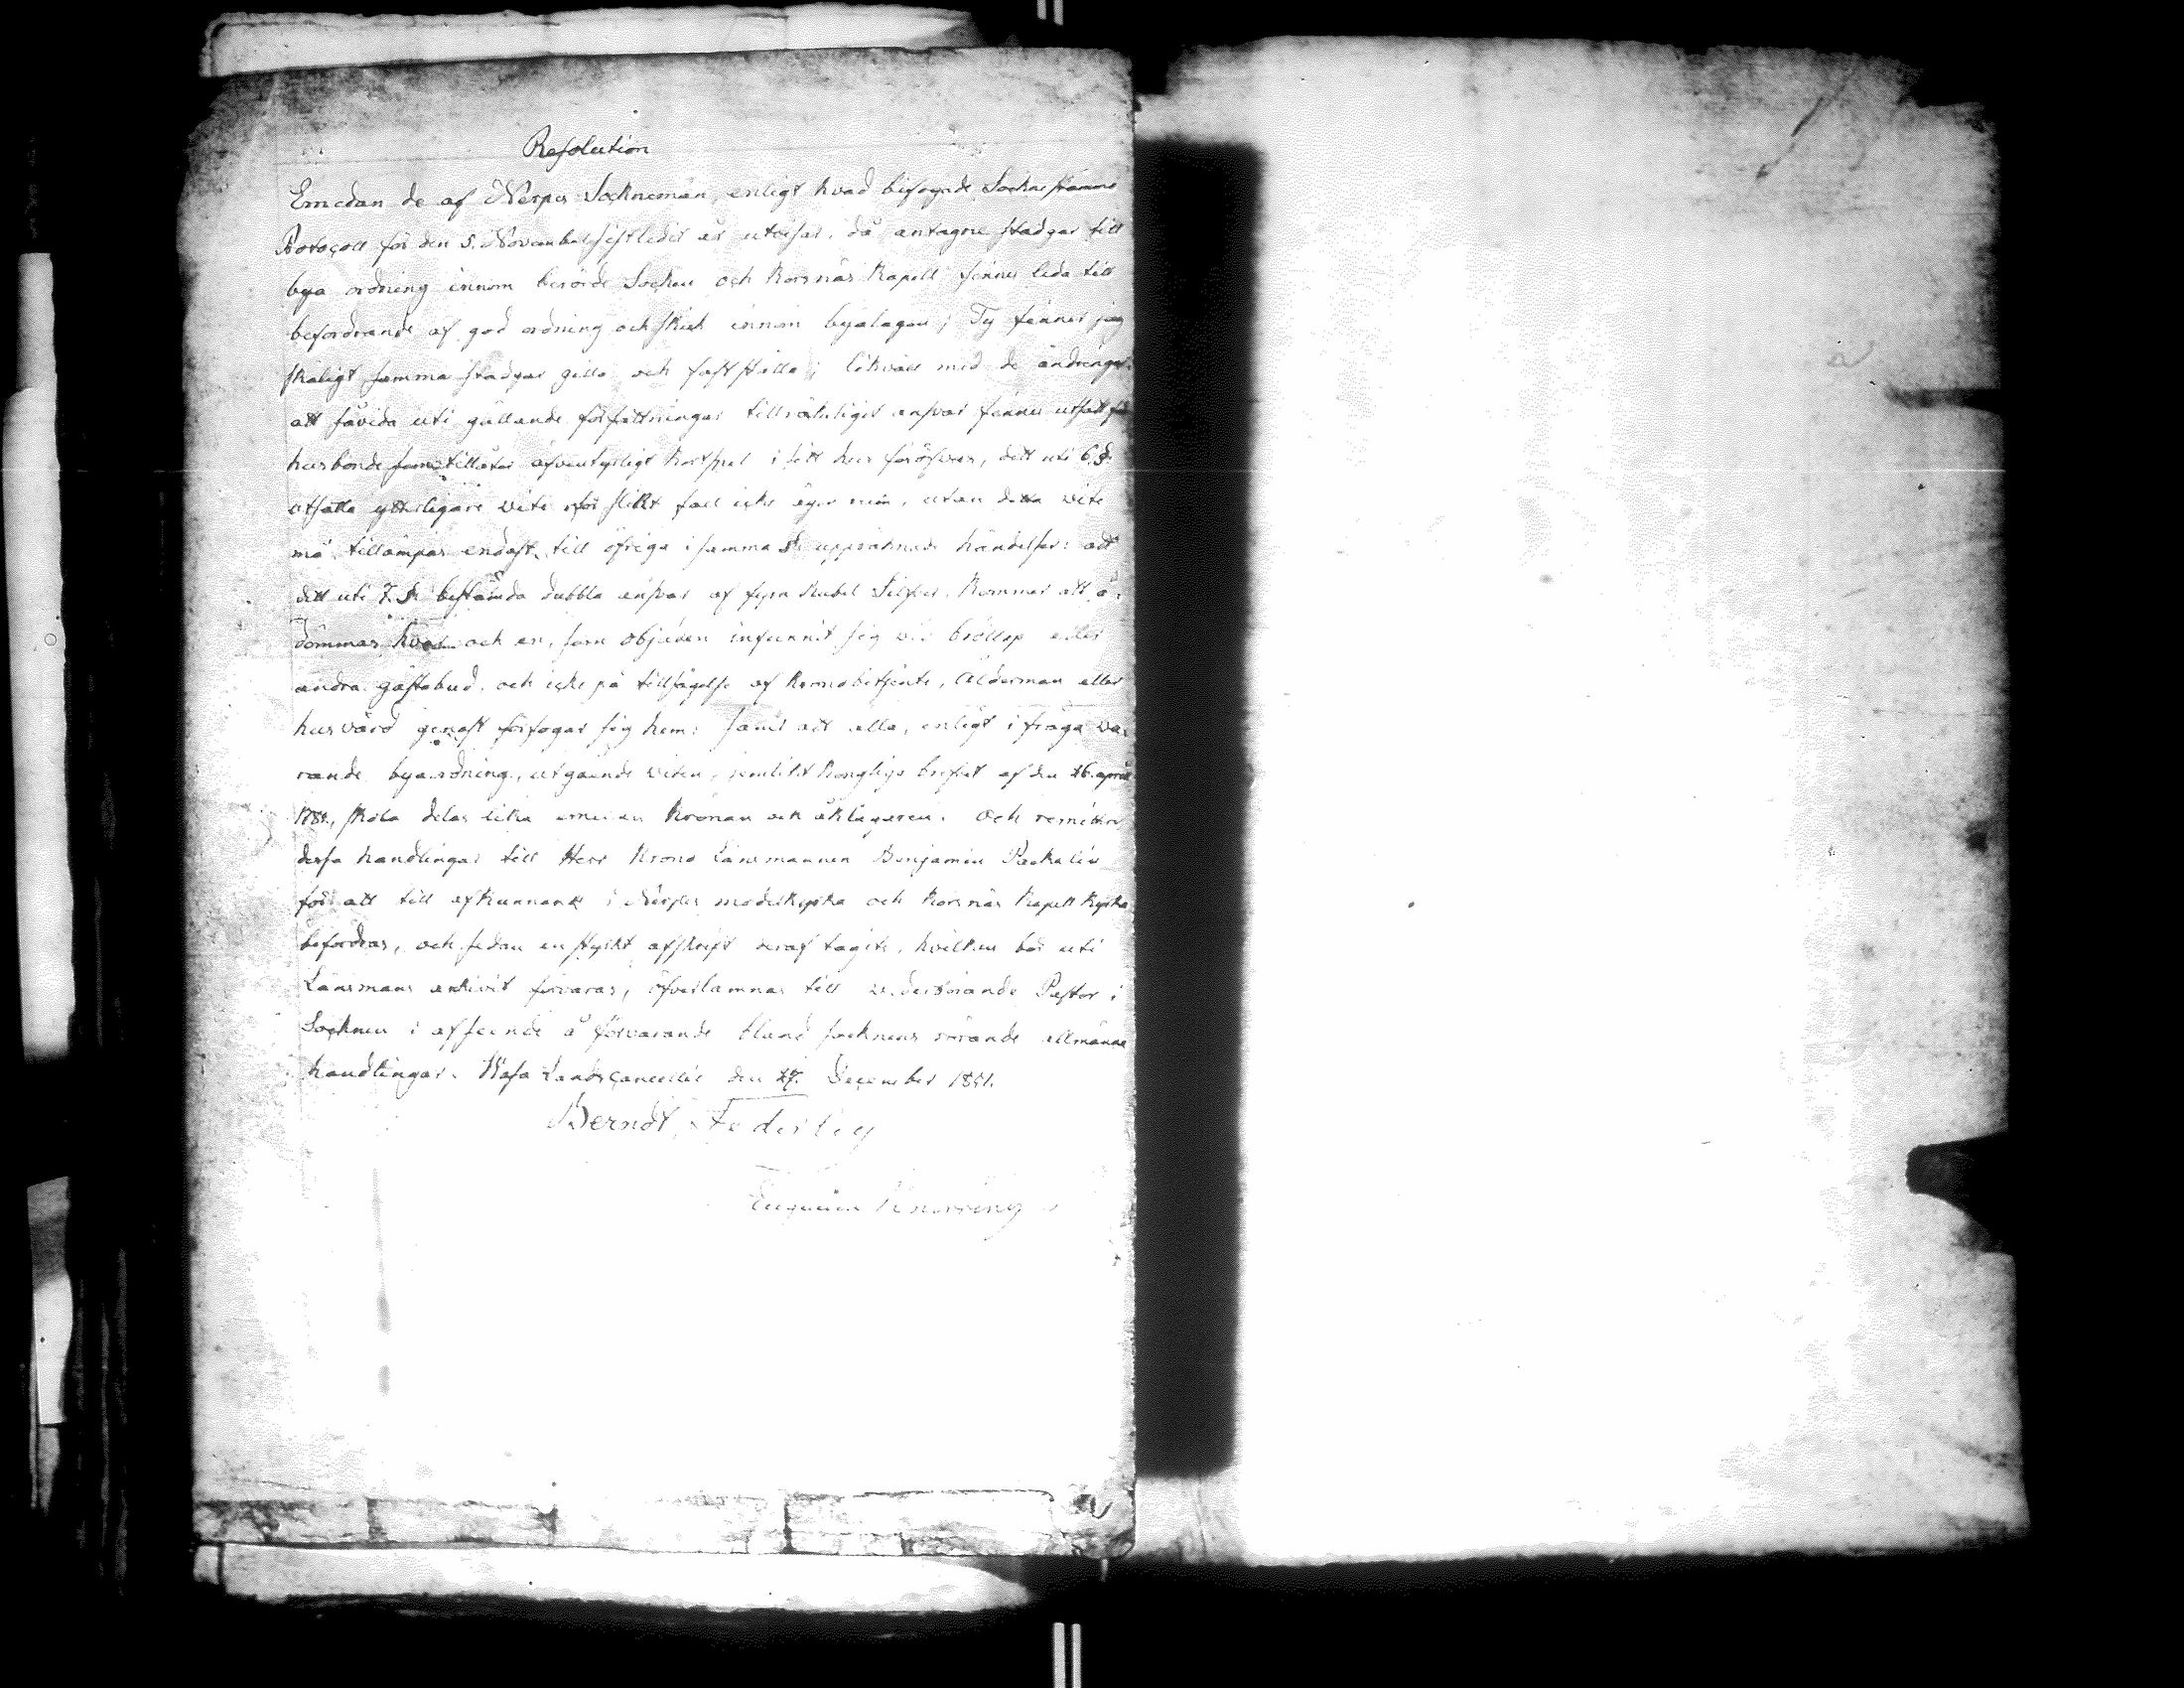 Resolution
Emedan de af Nerpes Socknemän, enligt hvad bifogade Sockne stämmo
Protocoll för den 5. November sistledit år utvisar, då antagne stadgar till
bya ordning innom berörde Socken och Korsnäs Kapell finnes leda till
befordrande af god ordning och skick innom byalagen; Ty finner jag
skäligt samma stadgar gilla och fastställa; likväl med de ändringar:
att såvida uti gällande författningar tillräckligit ansvar finnes utsatt för
husbonde som tillåter äfventyrligt kortspel i sitt hus föröfvas, dett uti 6. §.
utsatta ytterligare vite för slikt fall icke äger rum, utan detta vite
må tillämpas endast till öfriga i samma § uppräknade händelser: att
dett uti 7. § bestämda dubbla ansvar af fyra Rubel Silfver kommer att å-
dömmas hvar och en, som objuden infunnit sig vid bröllop eller
andra gästabud, och icke på tillsägelse af Kronobetjente, Ålderman eller
husvärd genast förfogar sig hem: samt att alla, enligt i fråga va-
rande byaordning, utgående viten, jemlikt Kongliga brefvet af den 26. april
skola delas lika emellan Kronan och åklagaren. Och remitteras
dessa handlingar till Herr Krono Länsmannen Benjamin Packalén
för att till afkunnande i Nerpes moderkyrka och Korsnäs Kapell Kyrka
befordras, och sedan en styrkt afskrift deraf tagits, hvilken bör uti
Länsmans arkivit förvaras, öfverlämnas till vederbörande Pastor i
Socknen i afseende å förvarande bland socknens rörande allmänna
handlingar. Wasa Landscancellie den 27. December 1851.
Berndt Federley
Knorring